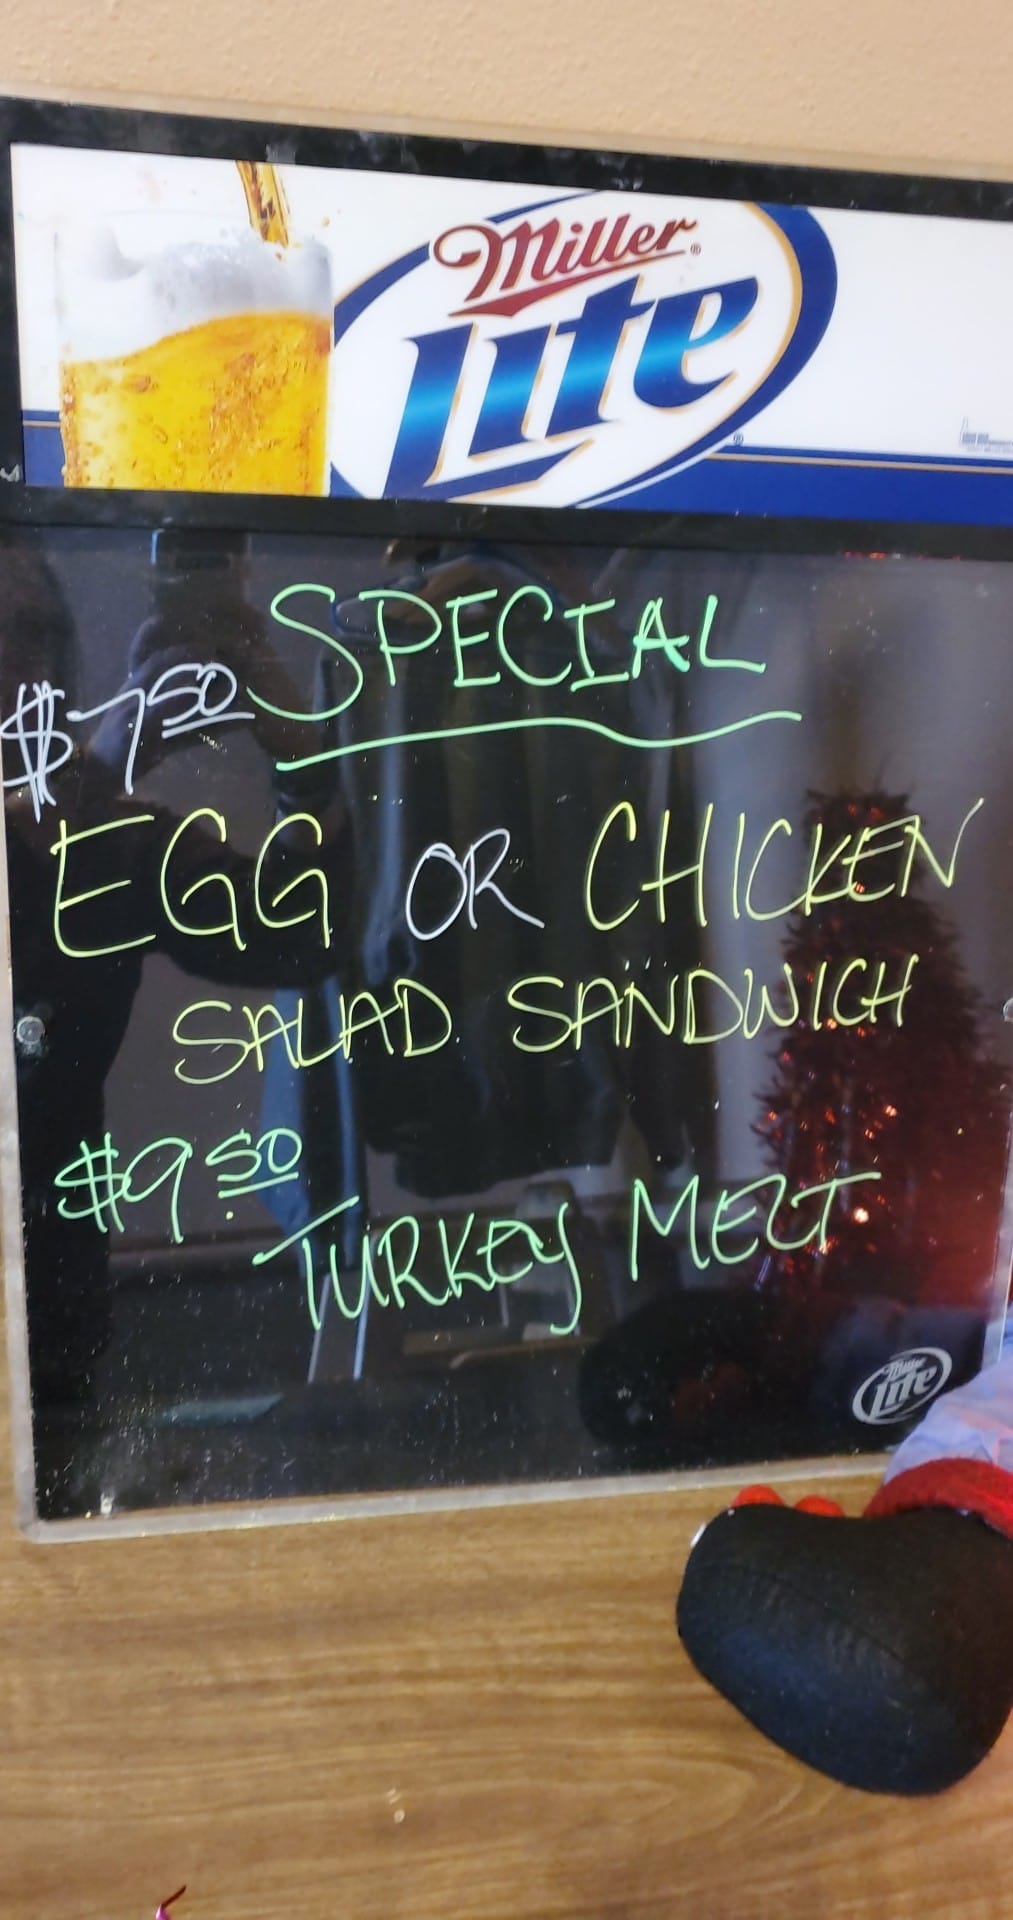 Miller
Lite
SPECIAL
$7.50
EGG OR CHICKEN
SALAD SANDWICH
$9.50
TURKEY MELT
Miller
Lite